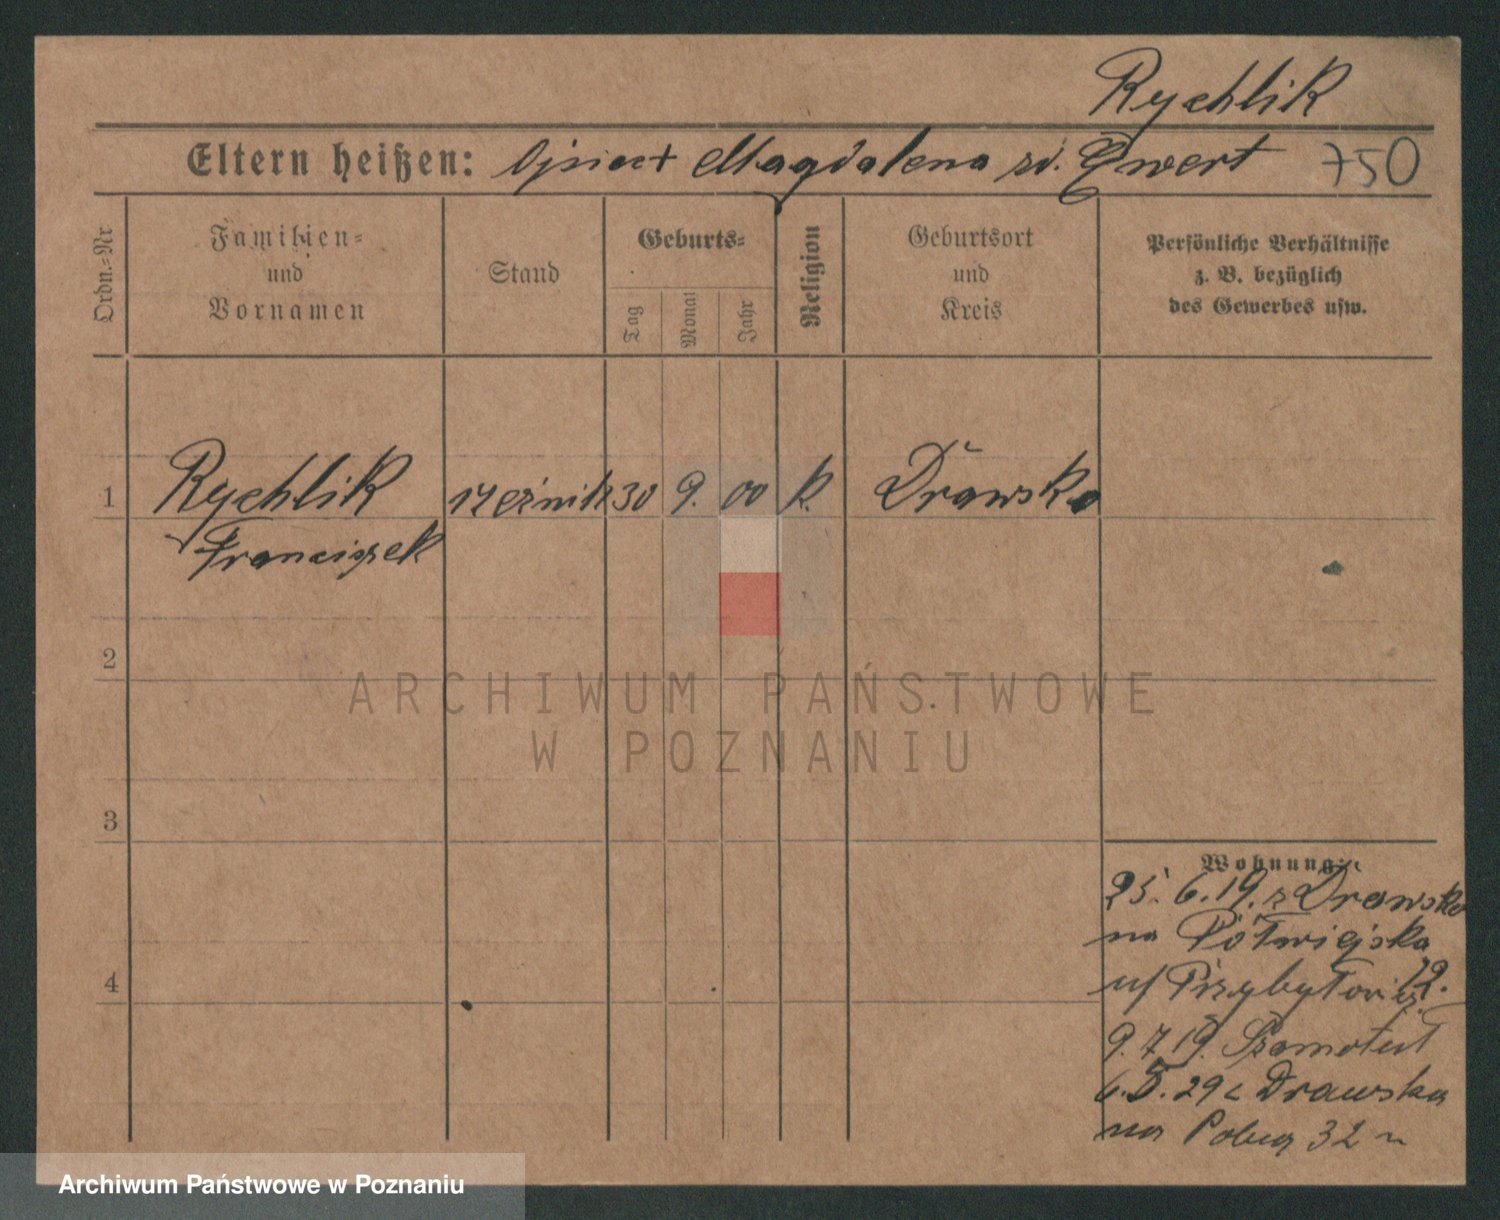 Rychlik
Eltern heißen: Magdalena Ewert 750
Ordn.-Nr
Familien- und Vornamen
Stand
Geburts-
Tag
Monat
Jahr
Religion
Geburtsort und Kreis
Persönliche Verhältnisse
z. B. bezüglich
des Gewerbes usw.
1 Rychlik rzeźnik 30 9. 00 k. Drawsko
Franciszek
2
3
4
ARCHIWUM PAŃSTWOWE
W POZNANIU
Wohnung:
25. 6. 19. z Drawska
na Półwiejska
u/ 12.
9. 7 19. Szamotuł
6. 5. 29 z Drawska
na 32
Archiwum Państwowe w Poznaniu